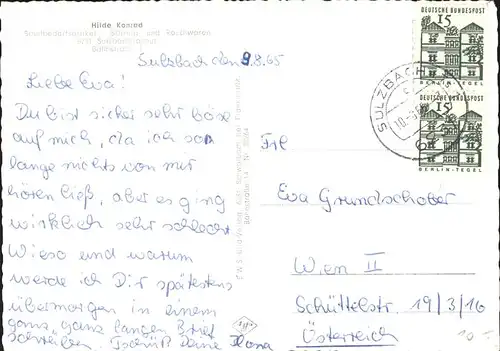 Hilde Konrad
Sulzbach den 9.8.65
Liebe Eva!
Du bist sicher sehr böse
auf mich, da ich so
lange nichts von mir
hören ließ, aber es ging
wirklich sehr schlecht
Wieso und warum
werde ich Dir spätestens
übermorgen in einem
ganz, ganz langen Brief
schreiben. Tschüß Deine Ilona
DEUTSCHE BUNDESPOST
15
BERLIN-TEGEL
DEUTSCHE BUNDESPOST
15
BERLIN-TEGEL
SULZBACH
Frl
Eva Grundschober
Wien II
Schüttelstr. 19/3/16
Österreich
10.-